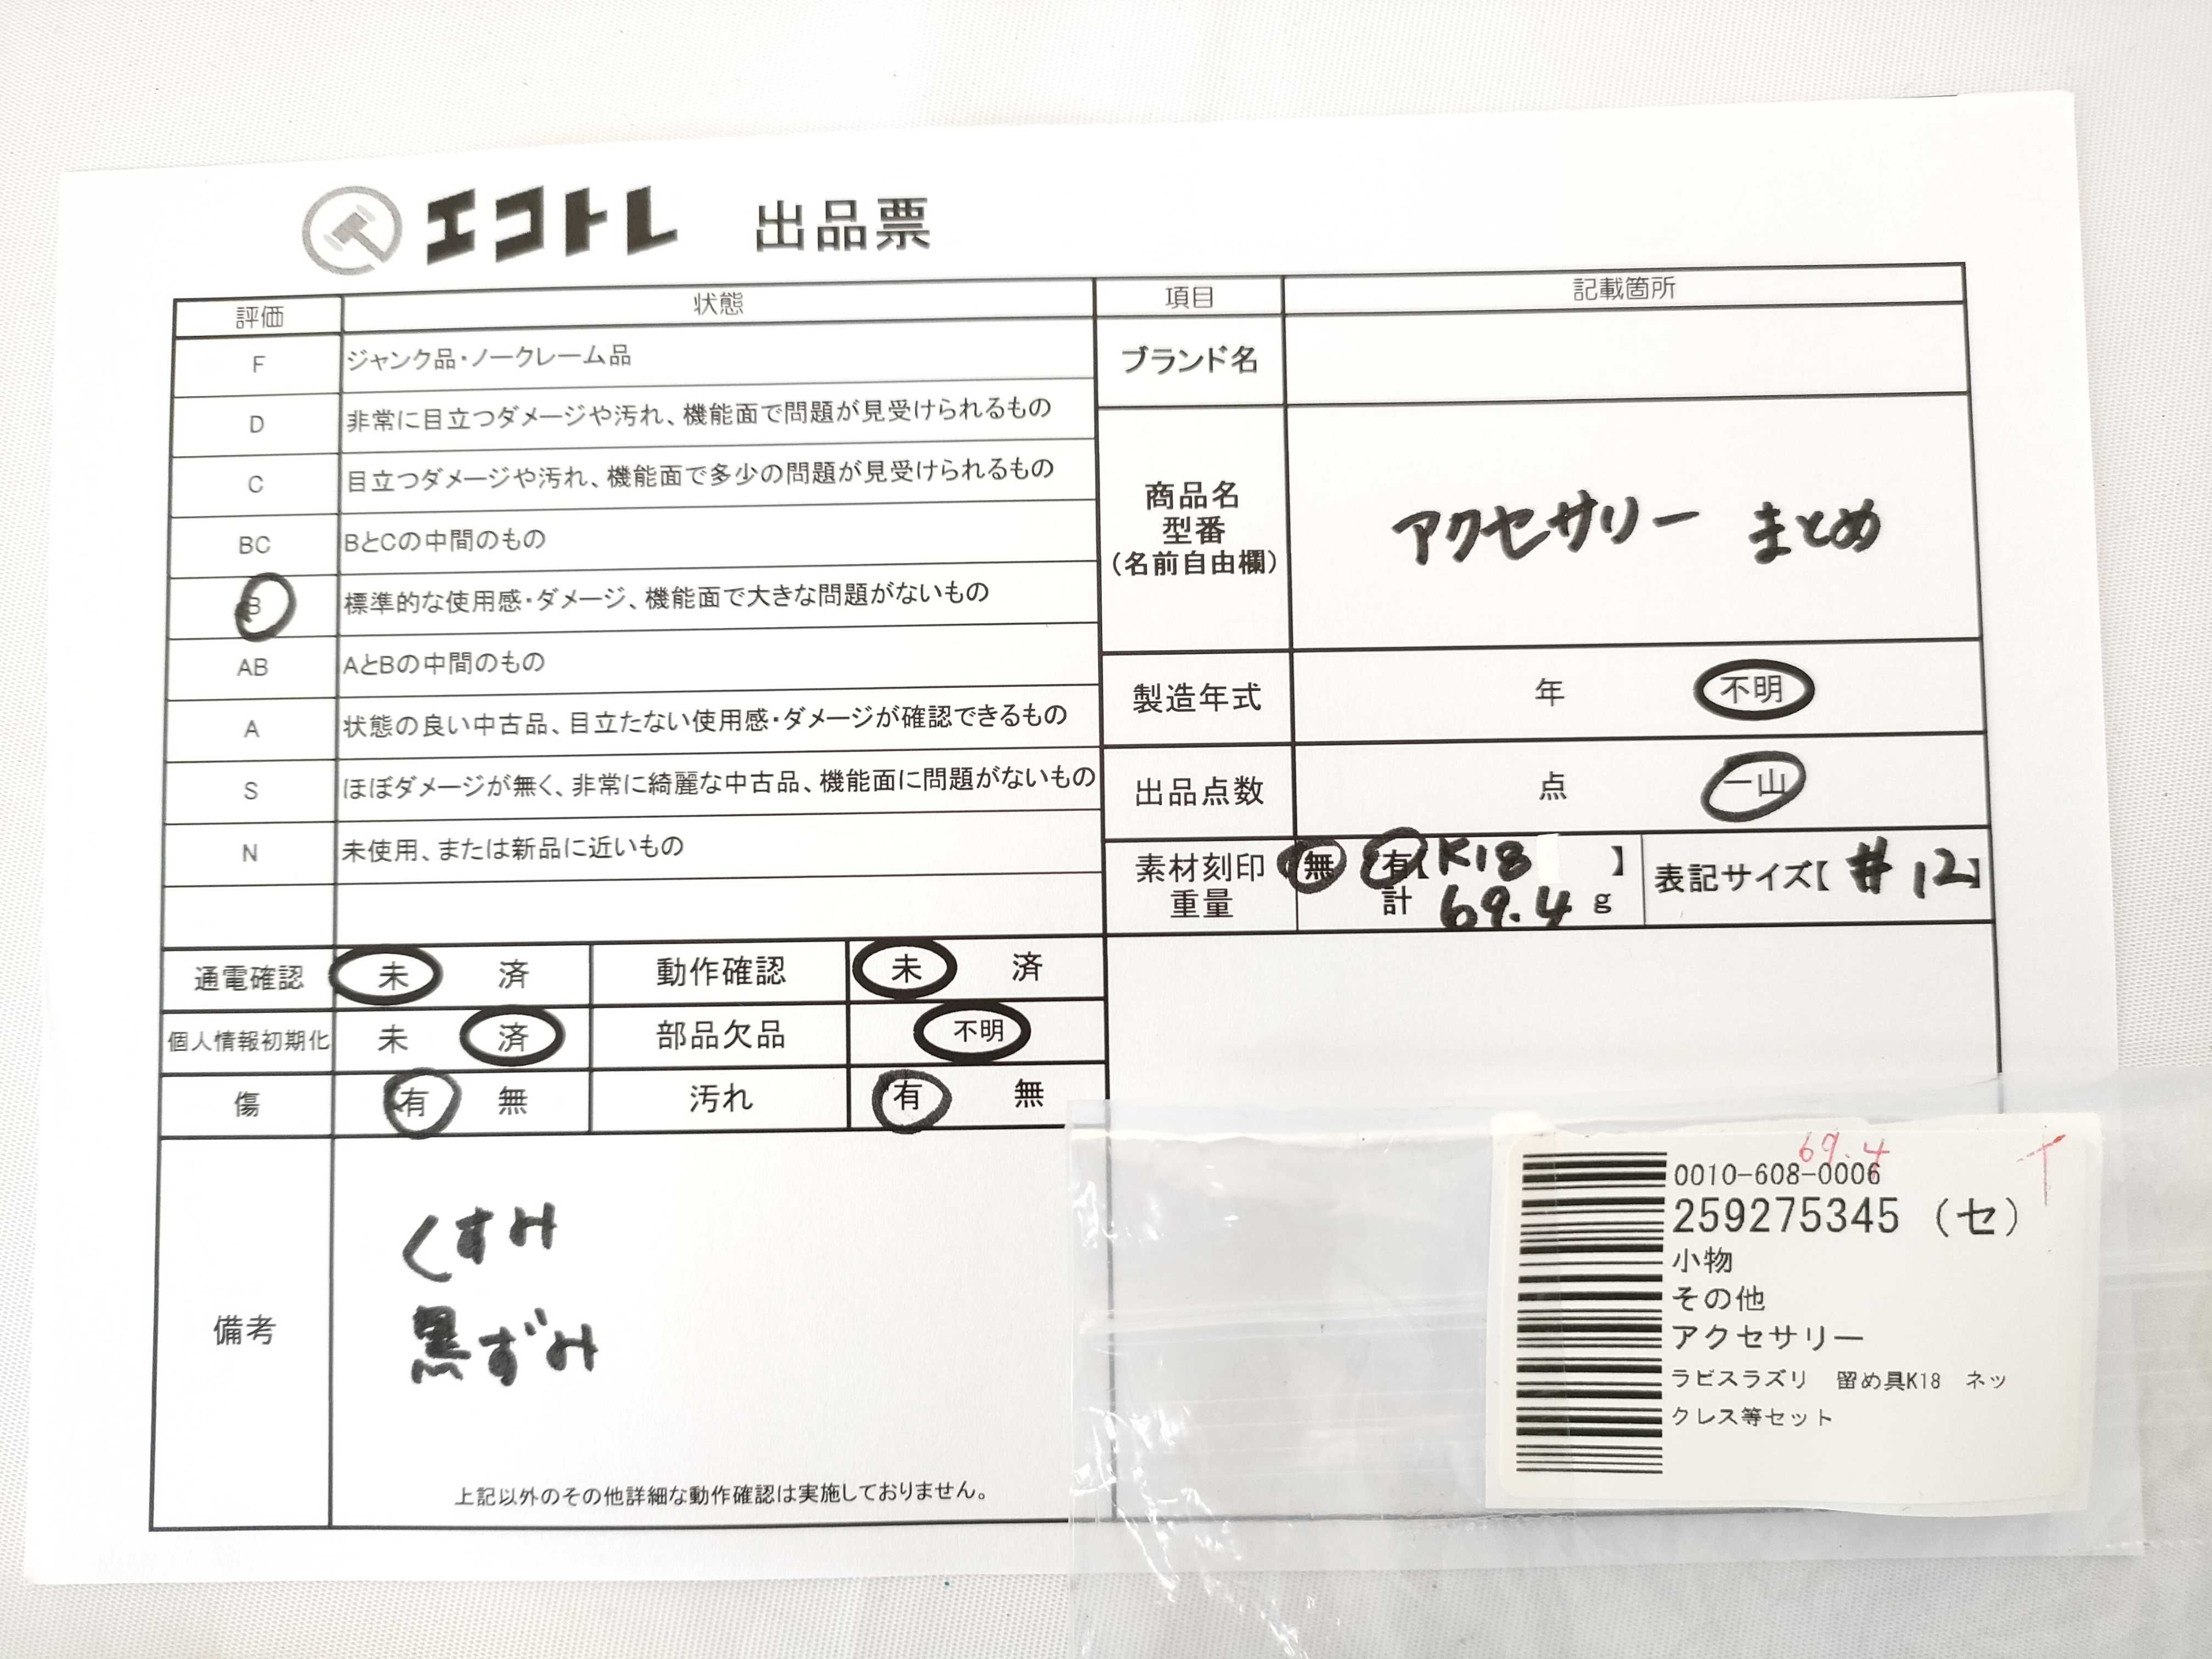 エコトレ 出品票
評価 状態
F ジャンク品・ノークレーム品
D 非常に目立つダメージや汚れ、機能面で問題が見受けられるもの
C 目立つダメージや汚れ、機能面で多少の問題が見受けられるもの
BC BとCの中間のもの
B 標準的な使用感・ダメージ、機能面で大きな問題がないもの
AB AとBの中間のもの
A 状態の良い中古品、目立たない使用感・ダメージが確認できるもの
S ほぼダメージが無く、非常に綺麗な中古品、機能面に問題がないもの
N 未使用、または新品に近いもの
通電確認 未 済 動作確認 未 済
個人情報初期化 未 済 部品欠品 不明
傷 有 無 汚れ 有 無
備考
くすみ
黒ずみ
上記以外のその他詳細な動作確認は実施しておりません。
項目 記載箇所
ブランド名
商品名
型番
(名前自由欄)
アクセサリー まとめ
製造年式 年 不明
出品点数 点 一山
素材刻印 無 有【K18 】
重量 計 69.4 g
表記サイズ【#12】
69.4
0010-608-0006
259275345 (セ)
小物
その他
アクセサリー
ラピスラズリ 留め具K18 ネッ
クレス等セット